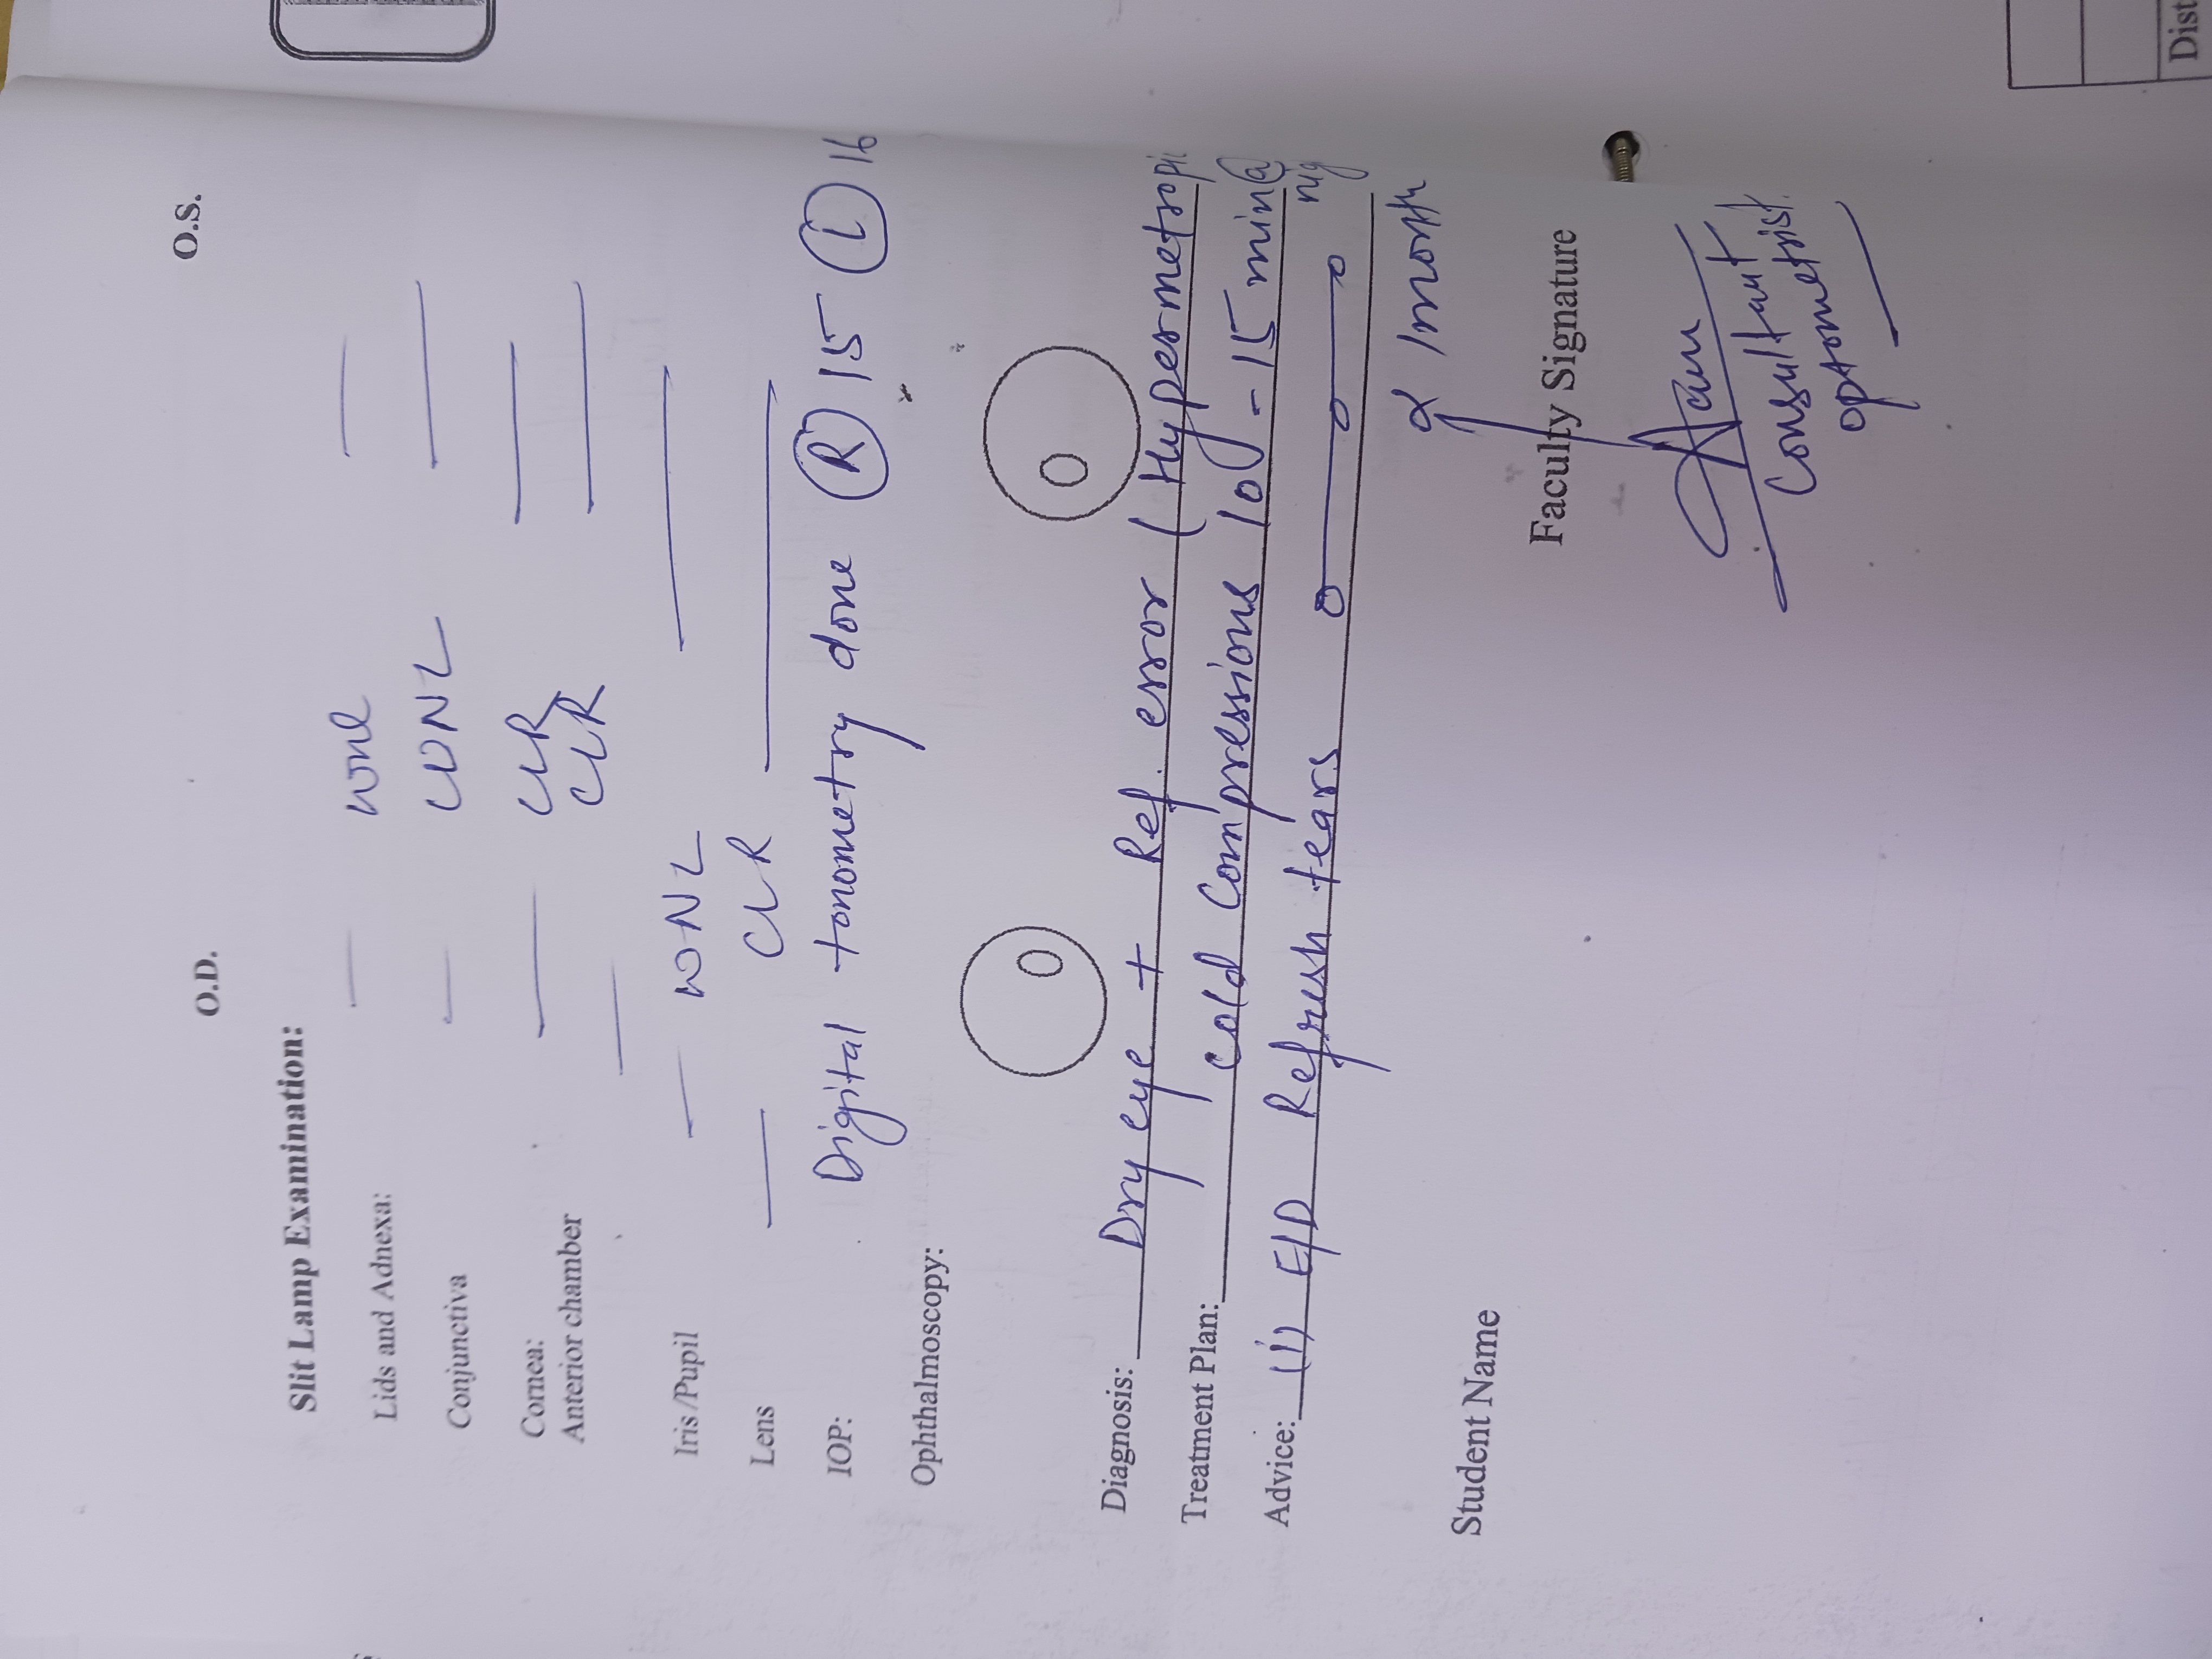 O.D. O.S.
Slit Lamp Examination:
Lids and Adnexa: — wnl —
Conjunctiva — WNL —
Cornea: — CLR —
Anterior chamber — CLR —
Iris /Pupil — WNL —
Lens — CLR —
IOP: Digital tonometry done (R) 15 (L) 16
Ophthalmoscopy:
Diagnosis: Dry eye + Ref. error ( Hypermetropi
Treatment Plan: cold Compressions 10 - 15 min @
nig
Advice: (i) E/D Refresh tears o—o—o
1 month
Student Name
Faculty Signature
Consultant
optometrist.
Dist